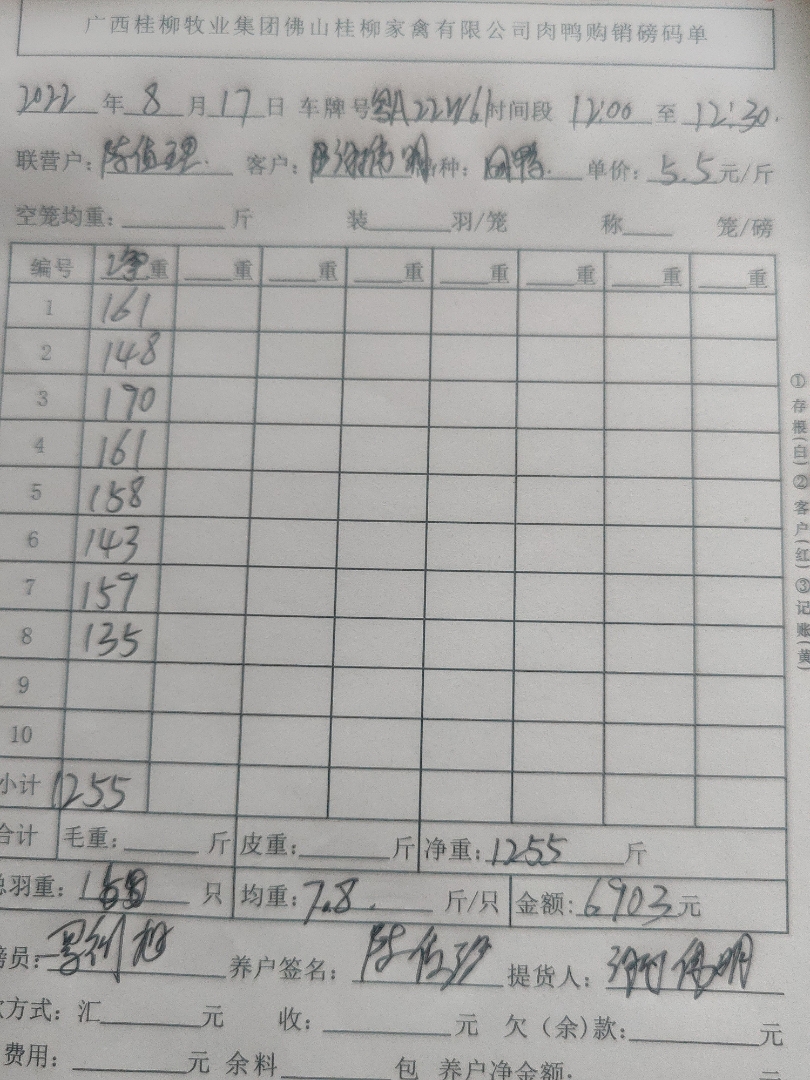 广西桂柳牧业集团佛山桂柳家禽有限公司肉鸭购销磅码单
2022 年 8 月 17 日 车牌号 时间段 12:00 至 12:30.
联营户: 客户: 种: 肉鸭. 单价: 5.5 元/斤
空笼均重: 斤 装 羽/笼 称 笼/磅
编号 净重 重 重 重 重 重 重 重
1 161
2 148
3 170
4 161
5 158
6 143
7 159
8 135
9
10
小计 1255
合计 毛重: 斤 皮重: 斤 净重: 1255 斤
总羽重: 只 均重: 7.8. 斤/只 金额: 6903 元
磅员: 养户签名: 提货人:
款方式: 汇 元 收: 元 欠(余)款: 元
费用: 元 余料 包 养户净金额: 元
①存根(白)②客户(红)③记账(黄)